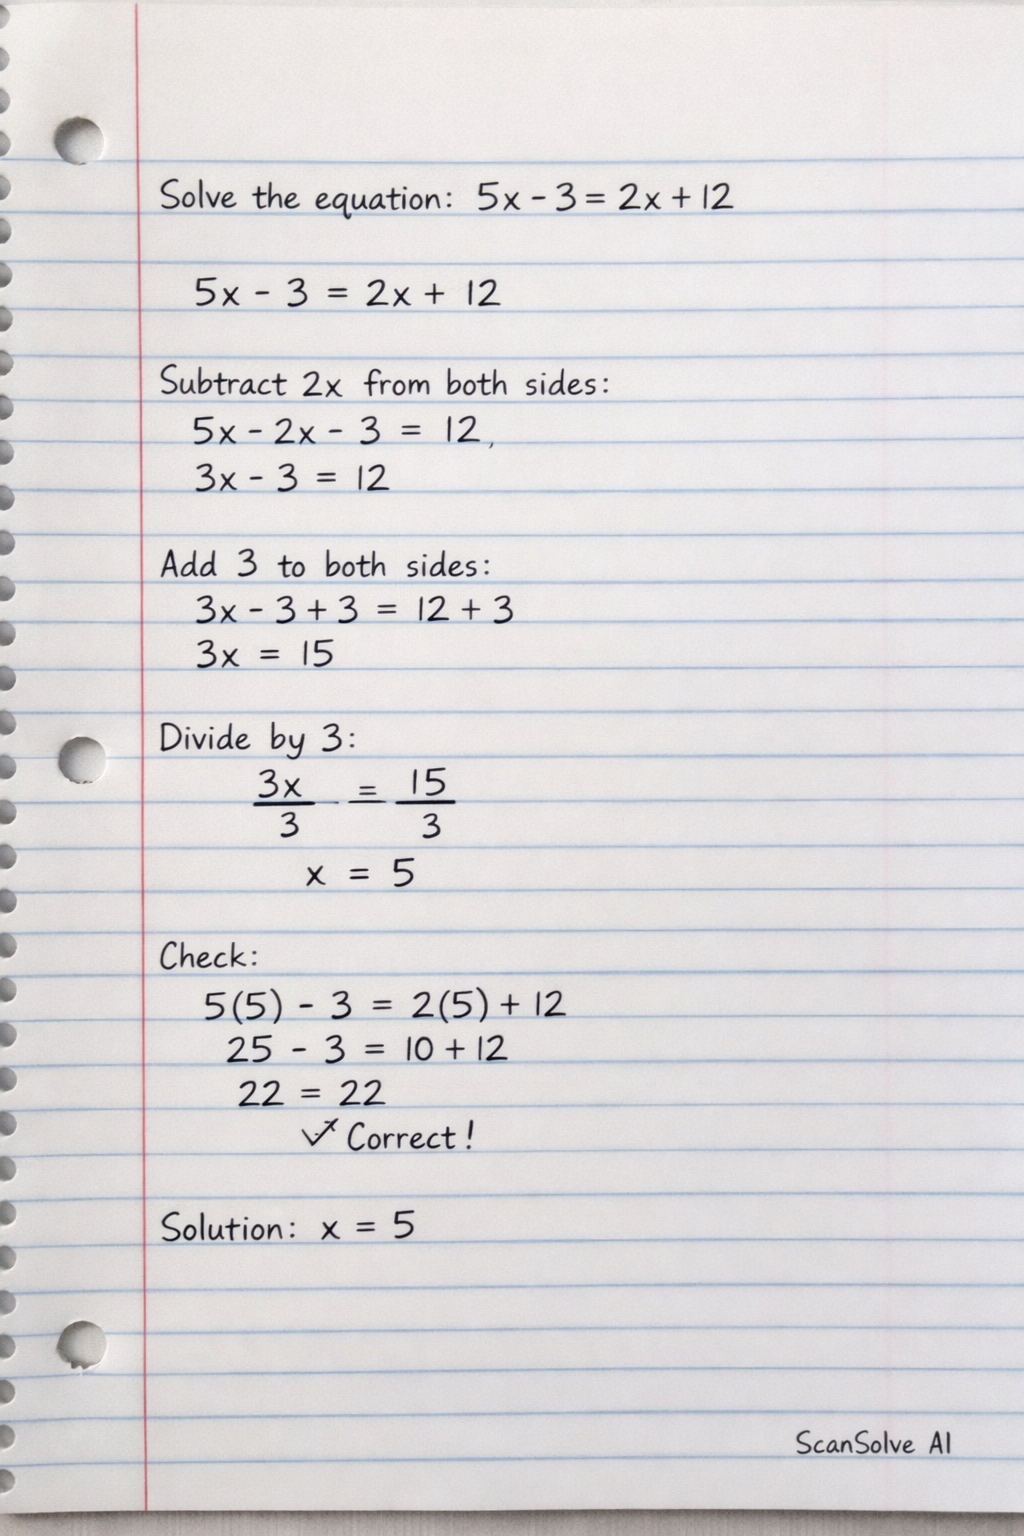 Solve the equation: 5x - 3 = 2x + 12
5x - 3 = 2x + 12
Subtract 2x from both sides:
5x - 2x - 3 = 12,
3x - 3 = 12
Add 3 to both sides:
3x - 3 + 3 = 12 + 3
3x = 15
Divide by 3:
3x/3 = 15/3
x = 5
Check:
5(5) - 3 = 2(5) + 12
25 - 3 = 10 + 12
22 = 22
✓ Correct!
Solution: x = 5
ScanSolve AI